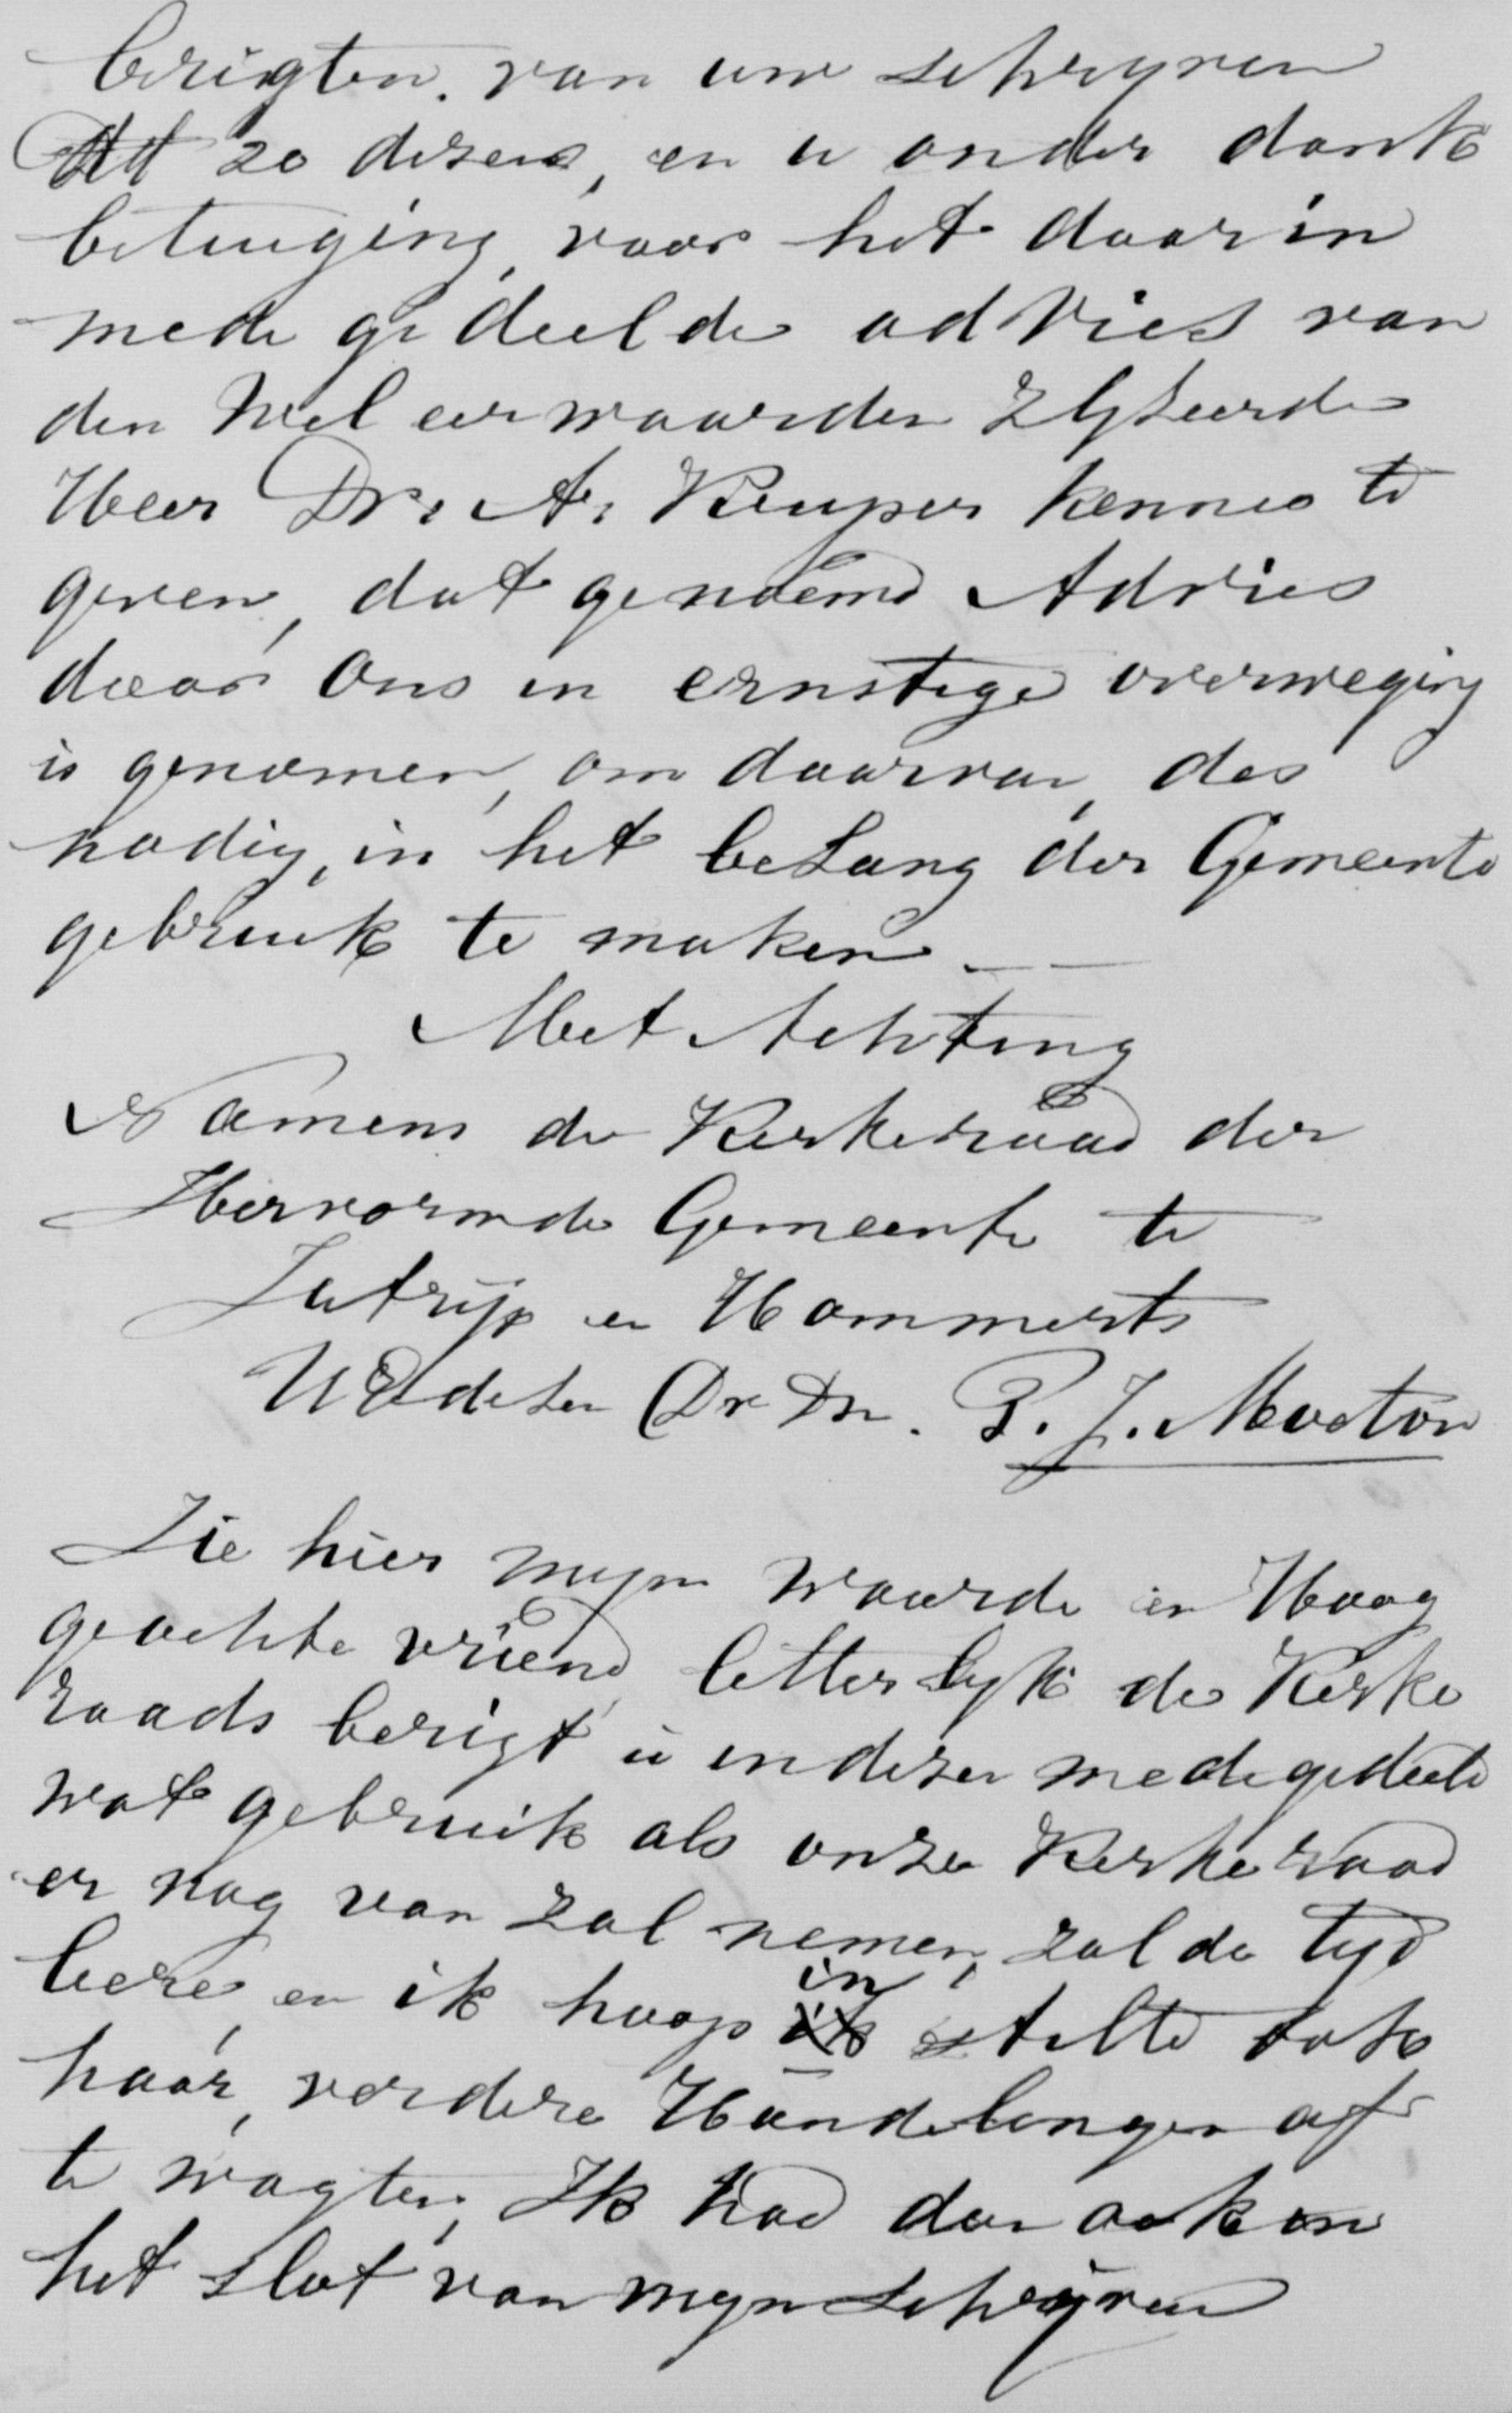 berigten. van uw schryven
dd 20 dezer, en u onder dank
betuiging, voor het daarin
mede gedeelde advies van
den Wel eerwaarden Zlgeleerde
Heer Dr. A. Kuyper kennis te
geven, dat genoemd Advies
door Ons in ernstige overweging
is genomen, om daarvan, des
nodig, in het belang der Gemeente
gebruik te maken. —
Met Achting
Namens de Kerkeraad der
Hervormde Gemeente te
Jutrijp en Hommerts
UEd (Dr Dn. P. J. Mooton
Zie hier myn waarde en Hoog
geachte vriend letterlyk de Kerke
raads berigt u in dezen mede gedeeld
wat gebruik als onze Kerkeraad
er nog van zal nemen, zal de tyd
leere, en ik hoop in stilte ook
haar, verdere Handelingen af
te wagten, Ik had dan ook en
het slot van myn schryven